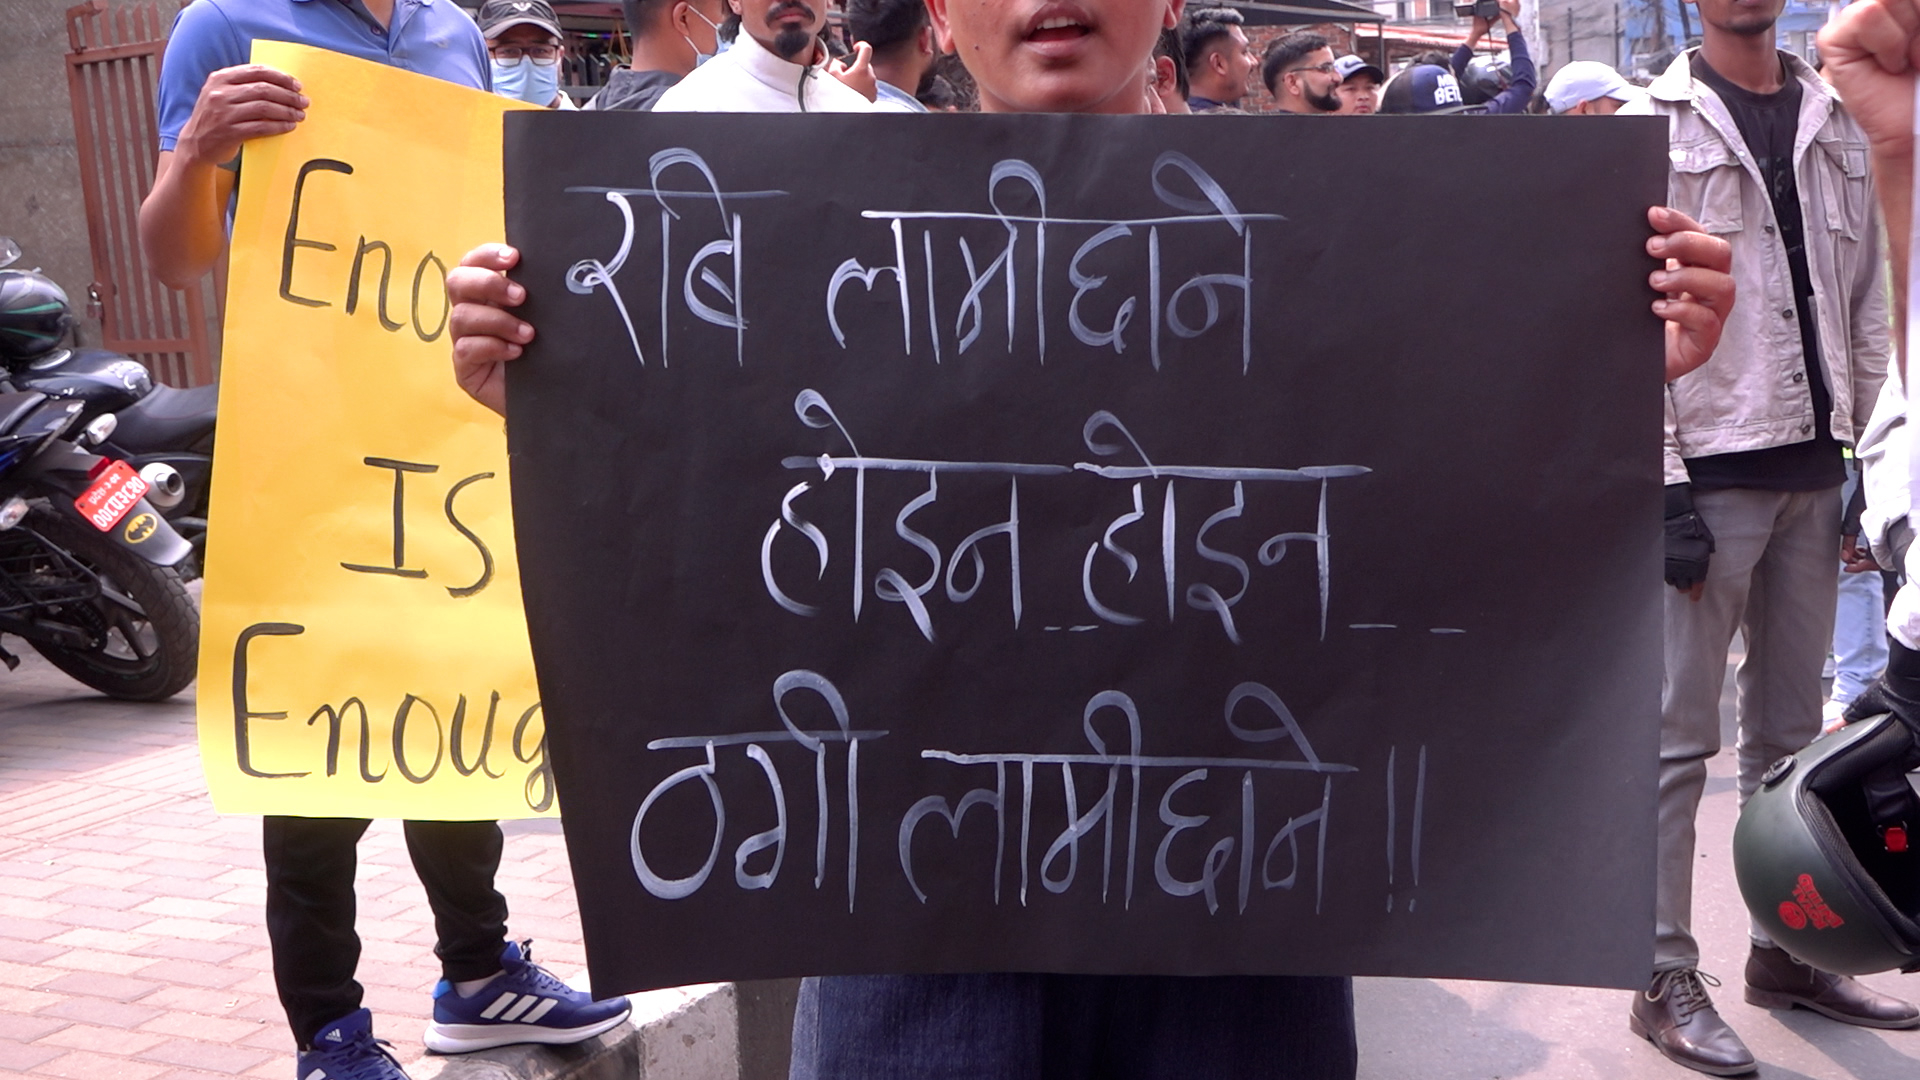 Eno
Is
Enoug
रबि लामीछाने
होइन __ होइन _ _
ठगी लामीछाने !!